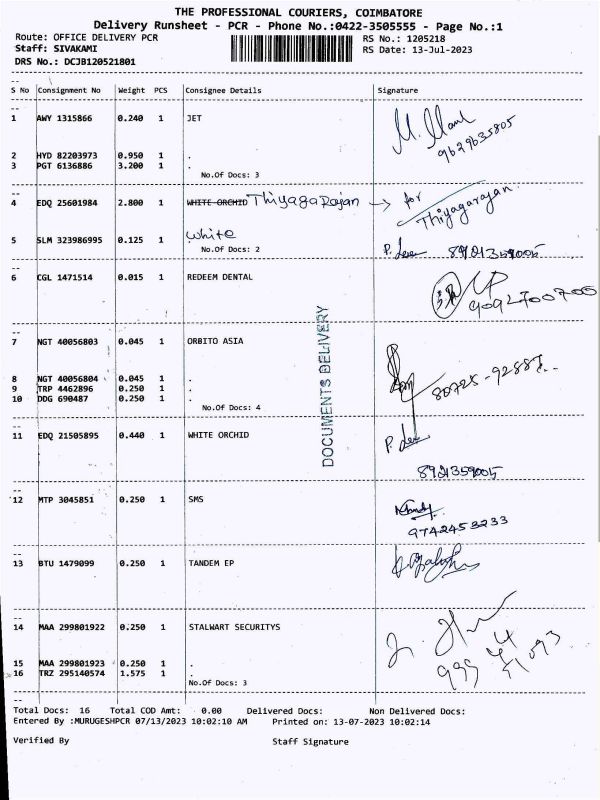 THE PROFESSIONAL COURIERS, COIMBATORE
Delivery Runsheet - PCR - Phone No.:0422-3505555 - Page No.:1
Route: OFFICE DELIVERY PCR
RS No.: 1205218
Staff: SIVAKAMI
RS Date: 13-Jul-2023
DRS No.: DCJB120521801
S No Consignment No Weight PCS Consignee Details Signature
1 AWY 1315866 0.240 1 JET
9629635805
2 HYD 82203973 0.950 1 .
3 PGT 6136886 3.200 1 .
No.Of Docs: 3
4 EDQ 25601984 2.800 1 WHITE ORCHID Thiyaga Rajan → for
Thiyagarajan
5 SLM 323986995 0.125 1 White
No.Of Docs: 2
8921359005
6 CGL 1471514 0.015 1 REDEEM DENTAL
DOCUMENTS DELIVERY
7 NGT 40056803 0.045 1 ORBITO ASIA
8 NGT 40056804 0.045 1 .
9 TRP 4462896 0.250 1 .
10 DDG 690487 0.250 1 .
No.Of Docs: 4
11 EDQ 21505895 0.440 1 WHITE ORCHID
8921359005
12 MTP 3045851 0.250 1 SMS
9742453233
13 BTU 1479099 0.250 1 TANDEM EP
14 MAA 299801922 0.250 1 STALWART SECURITYS
15 MAA 299801923 0.250 1 .
16 TRZ 295140574 1.575 1 .
No.Of Docs: 3
Total Docs: 16 Total COD Amt: 0.00 Delivered Docs: Non Delivered Docs:
Entered By :MURUGESHPCR 07/13/2023 10:02:10 AM Printed on: 13-07-2023 10:02:14
Verified By Staff Signature